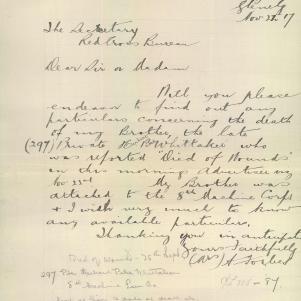 Glenelg
Nov 23. 17
The Secretary
Red Cross Bureau
Dear Sir or Madam
Will you please
endeavor to find out any
particulars concerning the death
of my Brother the late
(297) Private H. B. Whittaker who
was reported "Died of Wounds"
in this mornings Advertiser
Nov 23rd My Brother was
attached to the 8th Machine Corps
& I wish very much to know
any available particulars.
Thanking you in anticipat
Yours Faithfully
(Mrs) A Forbes
Died of Wounds - 26th Sept
297 Pte Whittaker
8th Machine Gun Co